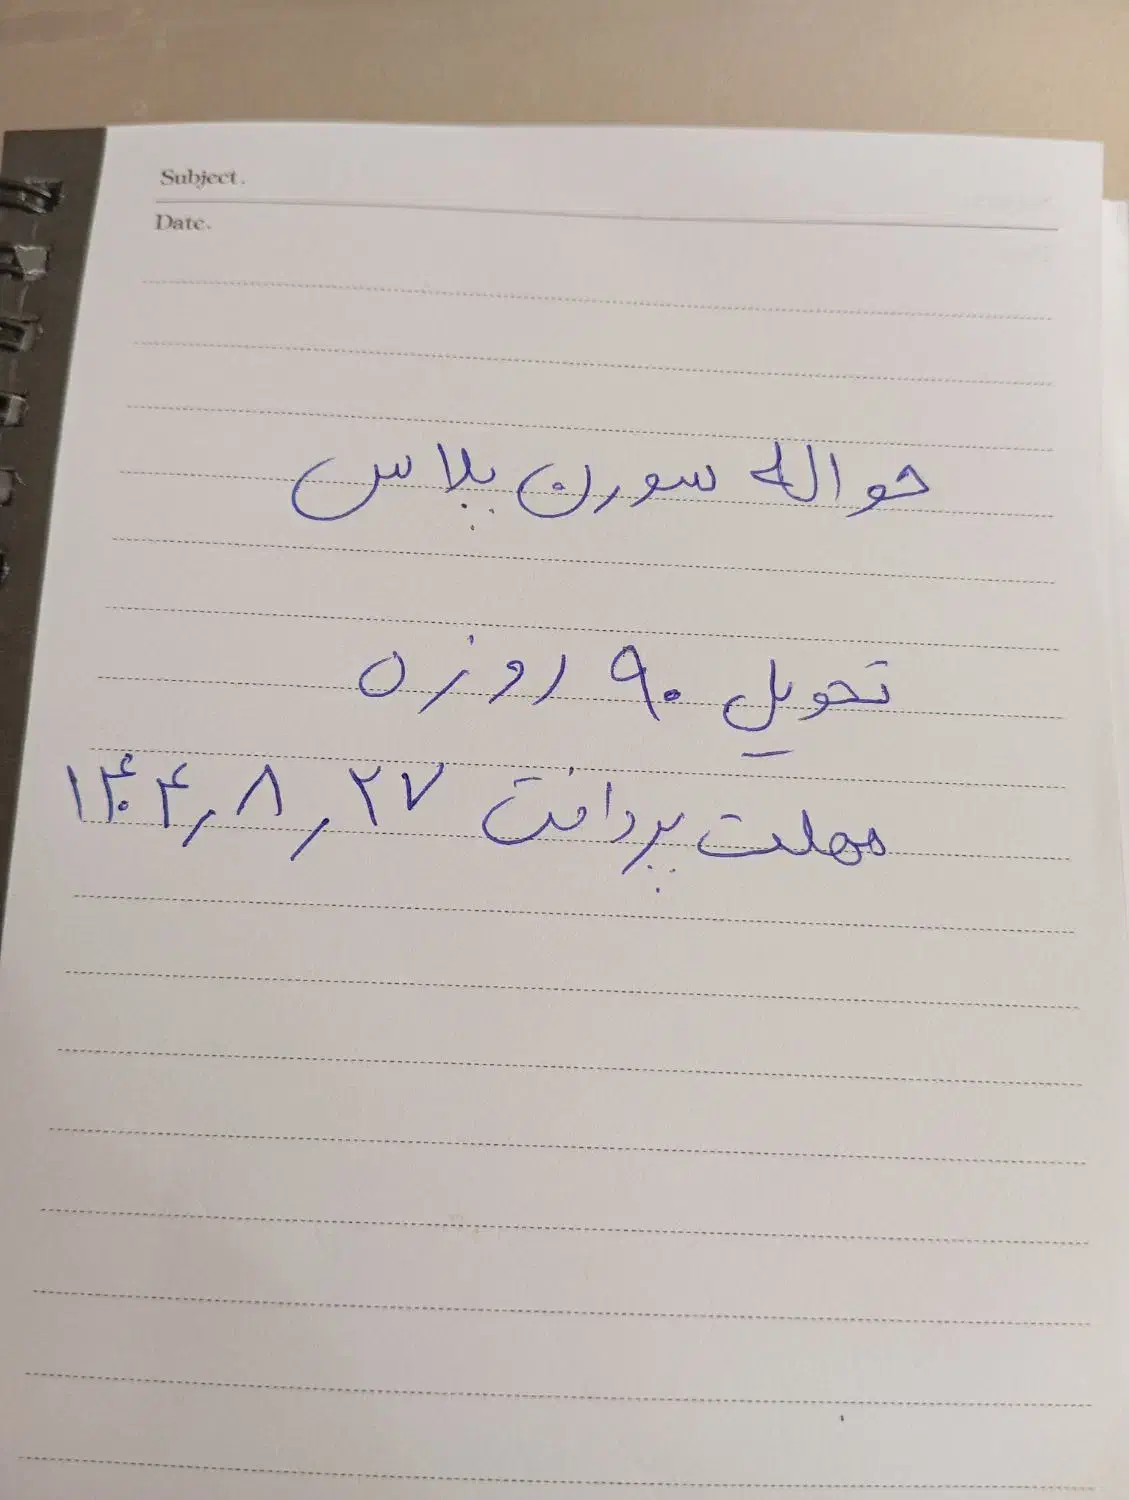 Subject.
Date.
حواله سورن پلاس
تحویل ۹۰ روزه
مهلت پرداخت ۱۴۰۴٫۸٫۲۷